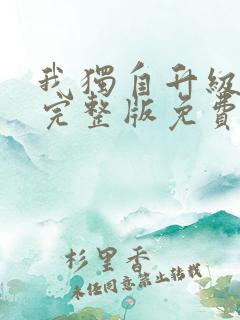 我獨自升級
完整版免費
杉里香
未经同意禁止转载